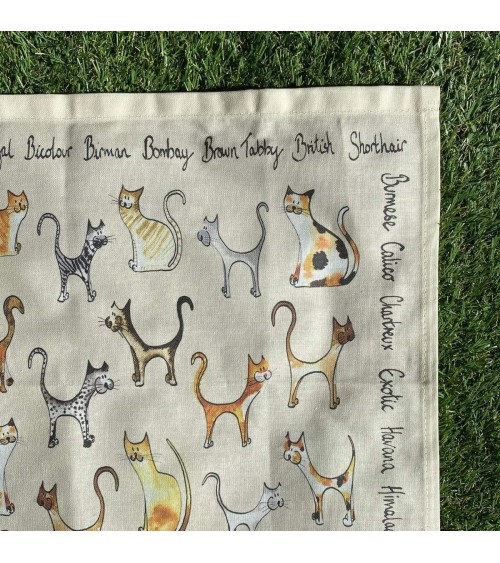 Bicolour Birman Bombay Brown Tabby British Shorthair
Burmese Calico Chartreux Exotic Havana